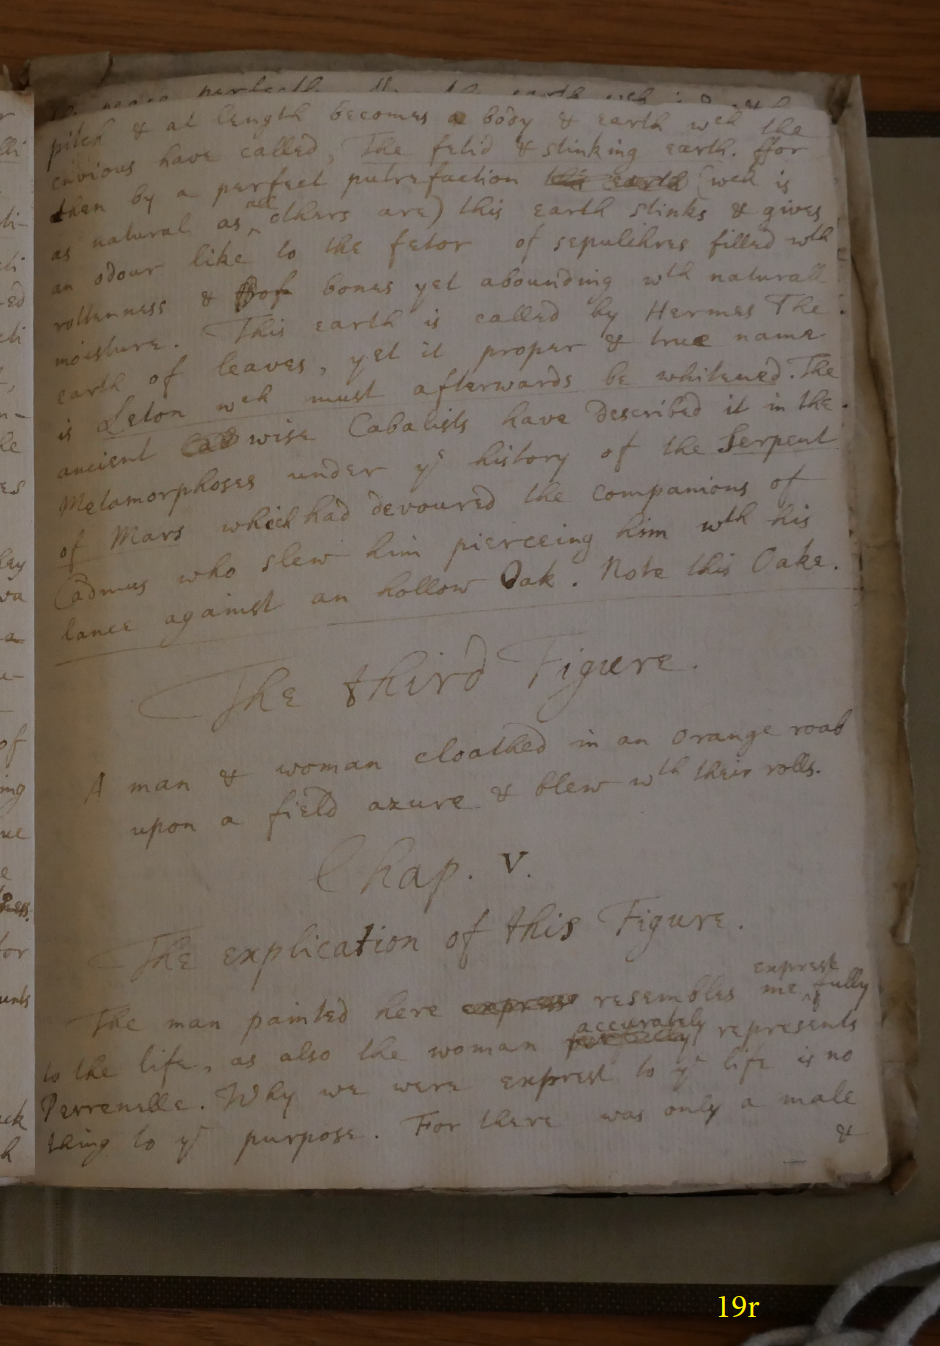 pitch & at length becomes a body & earth wch the
envious have called, The fetid & stinking earth. ffor
then by a perfect putrefaction this earth (wch is
as natural as all others are) this earth stinks & gives
an odour like to the fetor of sepulchres filled wth
rottenness & of bones yet abounding wth naturall
moisture. This earth is called by Hermes The
earth of leaves, yet it proper & true name
is Leton wch must afterwards be whitened. The
ancient Cab wise Cabalists have described it in the
Metamorphoses under ye history of the Serpent
of Mars which had devoured the companions of
Cadmus who slew him pierceing him wth his
lance against an hollow Oak. Note this Oake.
The third Figure.
A man & woman cloathed in an orange roab
upon a field azure & blew wth their rolls.
Chap. V.
The explication of this Figure.
The man painted here express resembles me exprest fully
to the life, as also the woman perfectly accurately represents
Perrenelle. Why we were exprest to ye life is no
thing to ye purpose. For there was only a male
&
19r